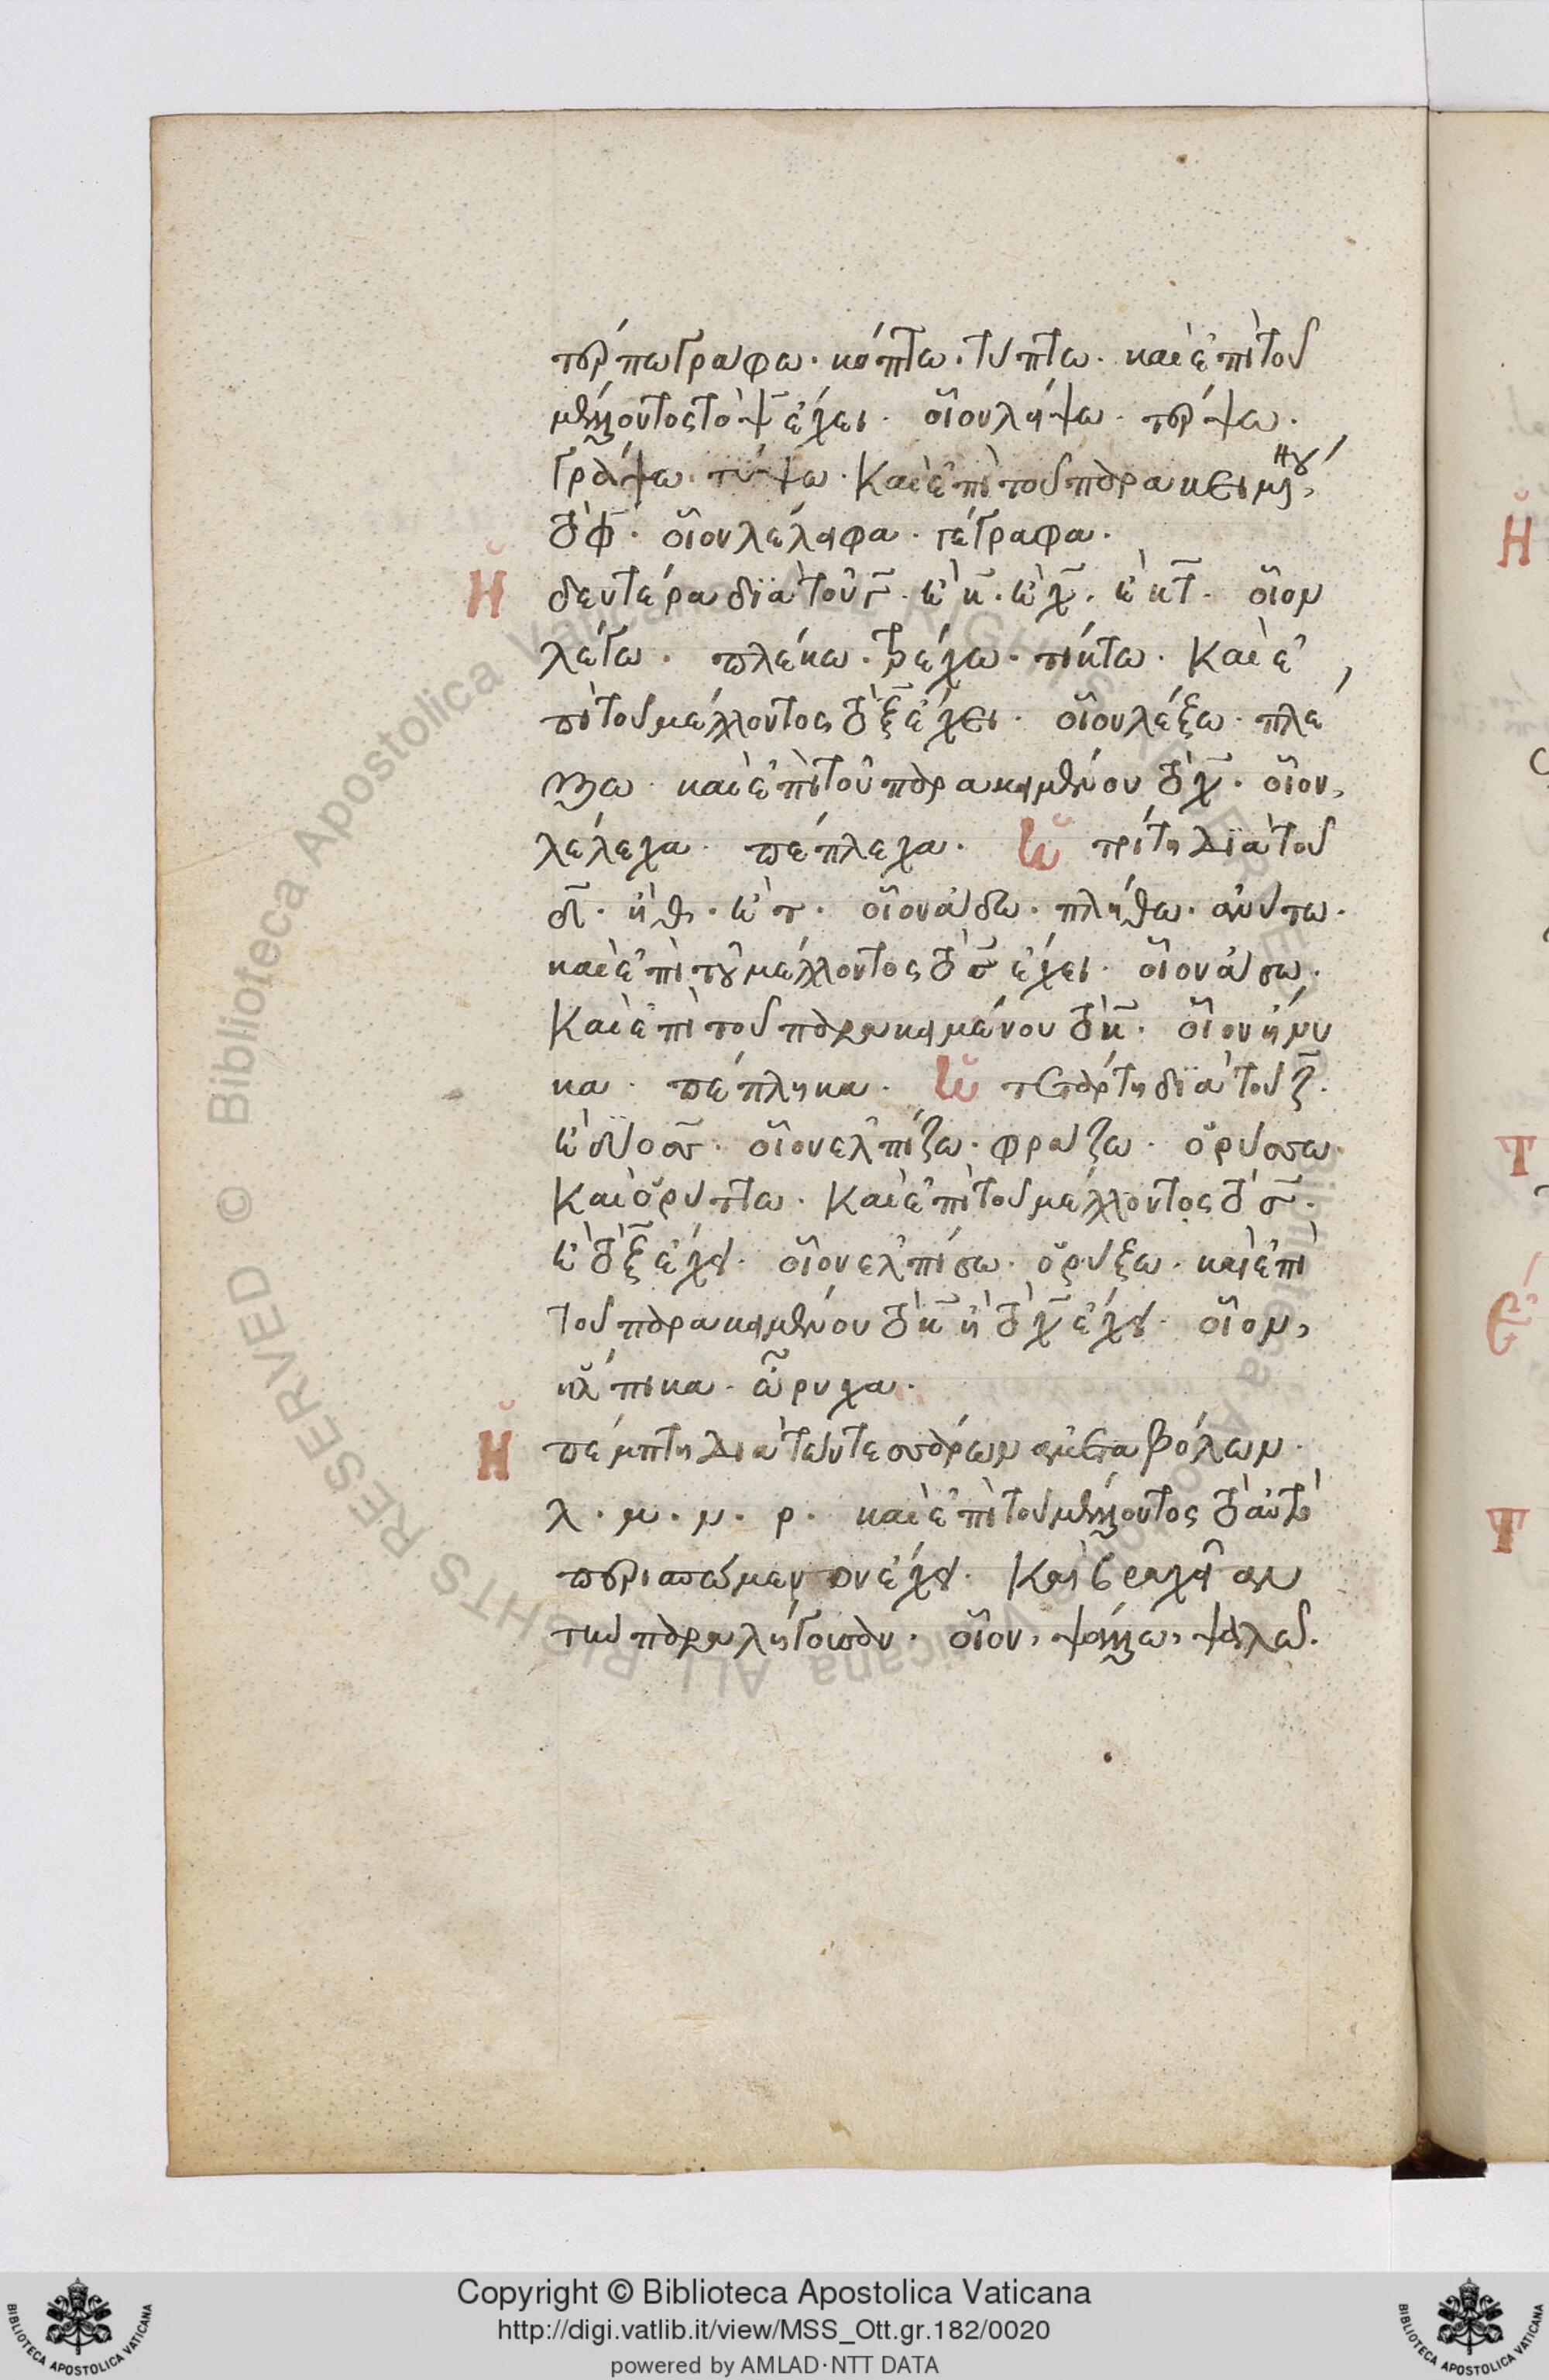 τέρπω γράφω· κόπτω· τύπτω· καὶ ἐπὶ τοῦ
μέλλοντος τὸ ψ ἔχει· οἷον λήψω· τέρψω·
γράψω· τύψω· καὶ ἐπὶ τοῦ παρακειμένου
τὸ φ· οἷον λέληφα· γέγραφα·
Ἡ δευτέρα διὰ τοῦ γ· ἢ κ· ἢ χ· ἢ κτ· οἷον
λέγω· πλέκω· τρέχω· τίκτω· καὶ ἐ
πὶ τοῦ μέλλοντος τὸ ξ ἔχει· οἷον λέξω· πλέ
ξω· καὶ ἐπὶ τοῦ παρακειμένου τὸ χ· οἷον,
λέλεχα· πέπλεχα· ἡ τρίτη διὰ τοῦ
δ· ἢ θ· ἢ τ· οἷον ἄδω· πλήθω· ἀνύτω·
καὶ ἐπὶ τοῦ μέλλοντος τὸ σ ἔχει· οἷον ἄσω·
καὶ ἐπὶ τοῦ παρακειμένου τὸ κ· οἷον ἤνυ
κα· πέπληκα· ἡ τετάρτη διὰ τοῦ ζ·
ἢ δύο σσ· οἷον ἐλπίζω· φράζω· ὀρύσσω·
καὶ ὀρύττω· καὶ ἐπὶ τοῦ μέλλοντος τὸ σ·
ἢ τὸ ξ ἔχει· οἷον ἐλπίσω· ὀρύξω· καὶ ἐπὶ
τοῦ παρακειμένου τὸ κ ἢ τὸ χ ἔχει· οἷον,
ἤλπικα· ὤρυχα·
Ἡ πέμπτη διὰ τῶν τεσσάρων ἀμεταβόλων·
λ· μ· ν· ρ· καὶ ἐπὶ τοῦ μέλλοντος τὸ αὐτὸ
περισπώμενον ἔχει· καὶ βραχεῖαν
τὴν παραλήγουσαν· οἷον, ψάλλω, ψαλῶ·
Copyright © Biblioteca Apostolica Vaticana
http://digi.vatlib.it/view/MSS_Ott.gr.182/0020
powered by AMLAD·NTT DATA